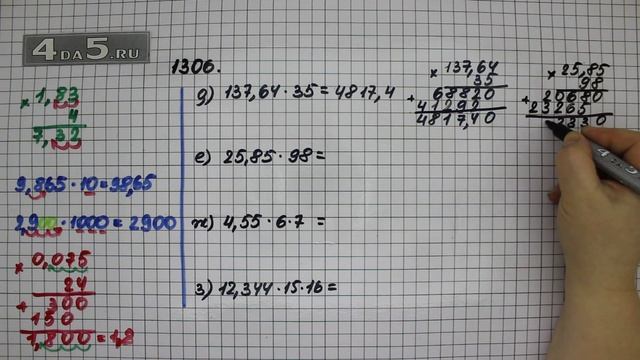 4DA5.RU
1306.
× 1,83
4
7,32
9,865 · 10 = 98,65
2,900 · 1000 = 2900
× 0,075
24
+ 300
150
1,800 = 1,8
д) 137,64 · 35 = 4817,4
е) 25,85 · 98 =
ж) 4,55 · 6 · 7 =
з) 12,344 · 15 · 16 =
× 137,64
35
+ 68820
41292
4817,40
× 25,85
98
+ 20680
23265
2330